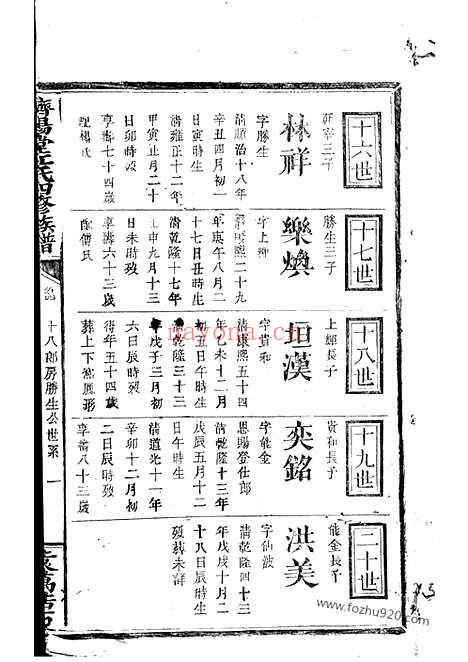 十六世
軒宰三子
林祥
字勝生
清順治十八年
辛丑四月初八
日寅時生
清雍正十二年
甲寅正月二十
日卯時歿
享壽七十四歲
配楊氏
十七世
勝生三子
樂煥
字上輝
清康熙二十九
年庚午八月二
十七日丑時生
清乾隆十七年
壬申九月十三
日未時歿
享壽六十三歲
配傅氏
十八世
上輝長子
垣漢
字貴和
清康熙五十四
年乙未十二月
初五日午時生
清乾隆三十三
年戊子三月初
六日辰時歿
得年五十四歲
葬上下窩鳳形
十九世
貴和長子
奕銘
字能金
恩賜登仕郎
清乾隆十三年
戊辰五月十二
日午時生
清道光十一年
辛卯十二月初
二日辰時歿
享壽八十三歲
二十世
能金長子
洪美
字仙波
清乾隆四十三
年戊戌十月二
十八日辰時生
歿葬未詳
濟陽堂江氏四修族譜
十八郎房勝生公世系 一
nayona.cn
www.fozhu920.com